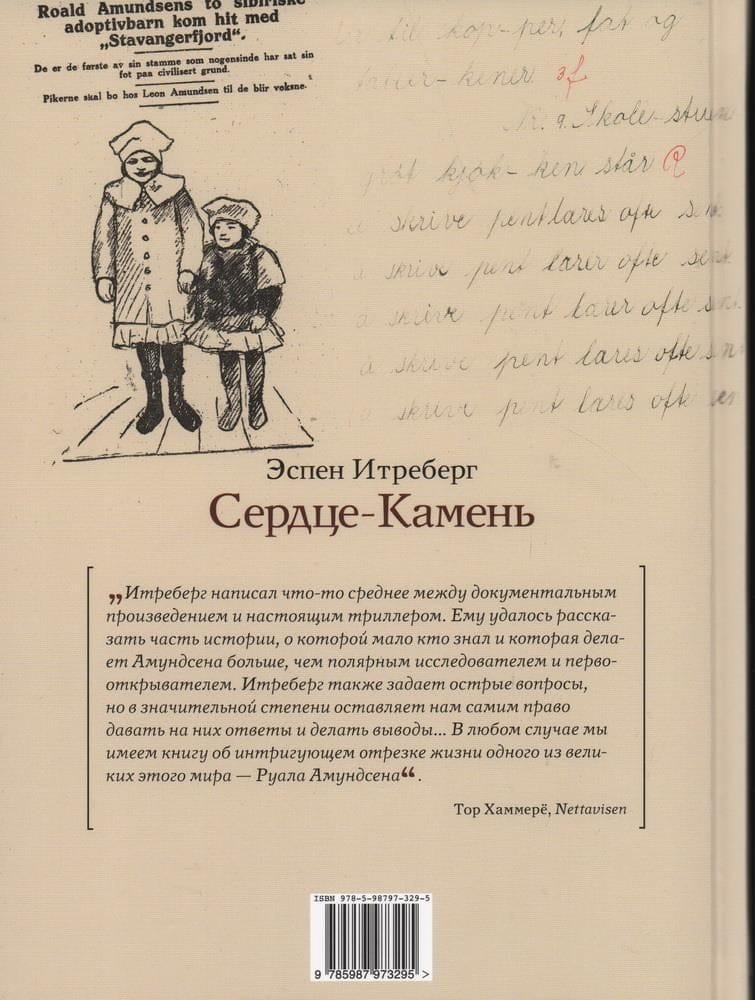 Roald Amundsens to sibiriske
adoptivbarn kom hit med
„Stavangerfjord“.
De er de første av sin stamme som nogensinde har sat sin
fot paa civilisert grund.
Pikerne skal bo hos Leon Amundsen til de blir voksne.
til kop-per, fat og
kener 3f
Nr. 9. Skole-stuen
kjøk-ken står R
skrive pent lares ofte sent
å skrive pent larer ofte sent
å skrive pent larer ofte
å skrive pent lares ofte
å skrive pent lares ofte
Эспен Итреберг
Сердце-Камень
„Итреберг написал что-то среднее между документальным
произведением и настоящим триллером. Ему удалось расска-
зать часть истории, о которой мало кто знал и которая дела-
ет Амундсена больше, чем полярным исследователем и перво-
открывателем. Итреберг также задает острые вопросы,
но в значительной степени оставляет нам самим право
давать на них ответы и делать выводы... В любом случае мы
имеем книгу об интригующем отрезке жизни одного из вели-
ких этого мира — Руала Амундсена“.
Тор Хаммерё, Nettavisen
ISBN 978-5-98797-329-5
9 785987 973295 >